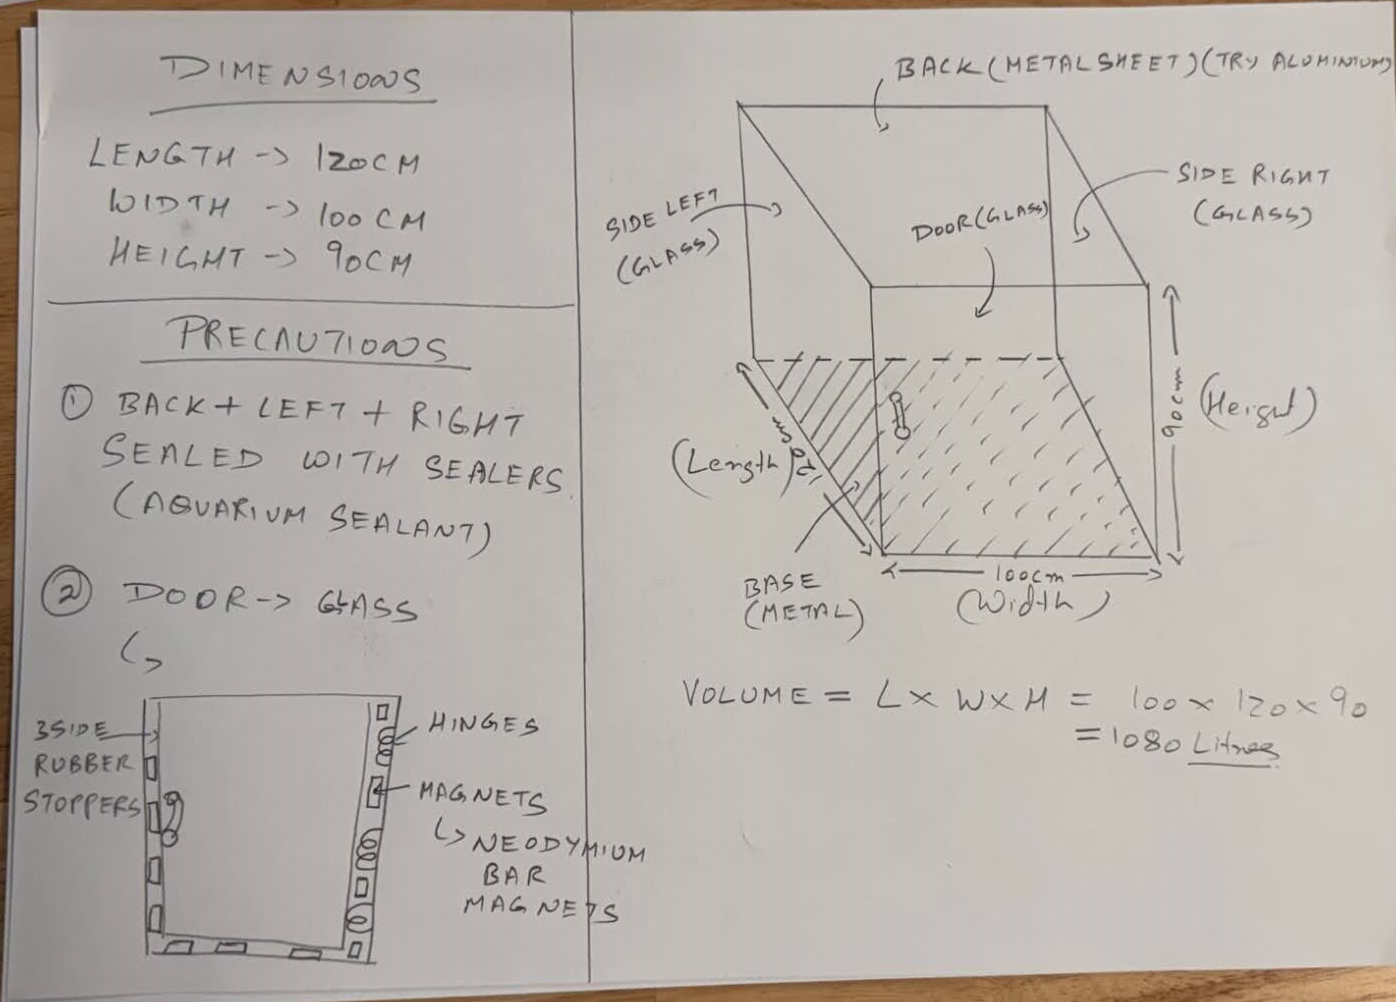 DIMENSIONS
LENGTH -> 120CM
WIDTH -> 100CM
HEIGHT -> 90CM
PRECAUTIONS
① BACK + LEFT + RIGHT
SEALED WITH SEALERS
(AQUARIUM SEALANT)
② DOOR -> GLASS
3SIDE
RUBBER
STOPPERS
HINGES
MAGNETS
NEODYMIUM
BAR
MAGNETS
BACK (METAL SHEET) (TRY ALUMINIUM)
SIDE LEFT
(GLASS)
DOOR (GLASS)
SIDE RIGHT
(GLASS)
90cm
(Height)
(Length)
100cm
(Width)
BASE
(METAL)
VOLUME = L x W x H = 100 x 120 x 90
= 1080 Litres